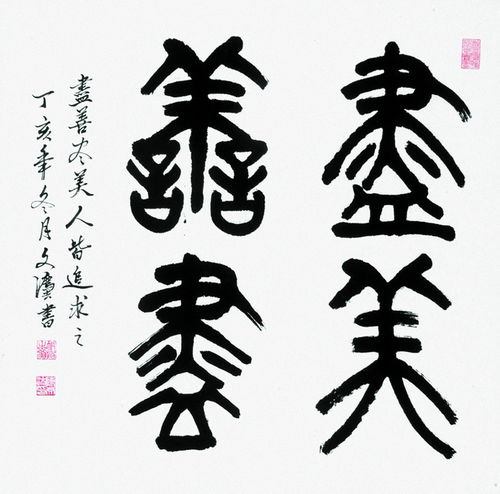 盡譱
盡美
盡善尽美人皆追求之
丁亥年冬月文書